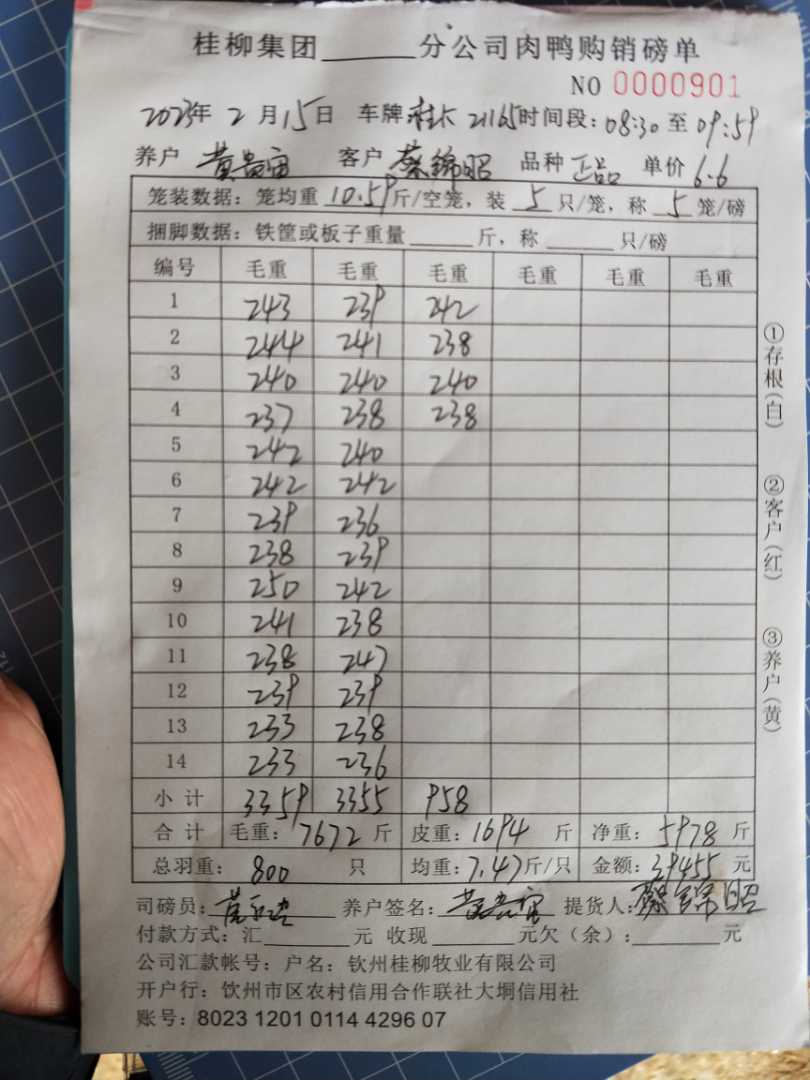 桂柳集团______分公司肉鸭购销磅单
NO 0000901
2023年 2月15日 车牌 桂K 21165 时间段：08:30 至 09:59
养户 黄贵富 客户 蔡锦昭 品种 正品 单价 6.6
笼装数据：笼均重 10.59 斤/空笼，装 5 只/笼，称 5 笼/磅
捆脚数据：铁筐或板子重量______斤，称______只/磅
编号 毛重 毛重 毛重 毛重 毛重 毛重
1 243 239 242
2 244 241 238
3 240 240 240
4 237 238 238
5 242 240
6 242 242
7 239 236
8 238 239
9 250 242
10 241 238
11 238 247
12 239 239
13 233 238
14 233 236
小计 3359 3355 958
合计 毛重：7672 斤 皮重：1694 斤 净重：5978 斤
总羽重：800 只 均重：7.47斤/只 金额：39455 元
司磅员： 养户签名：黄贵富 提货人：蔡锦昭
付款方式：汇______元 收现______元欠（余）：______元
公司汇款帐号：户名：钦州桂柳牧业有限公司
开户行：饮州市区农村信用合作联社大垌信用社
账号：8023 1201 0114 4296 07
①存根（白）
②客户（红）
③养户（黄）